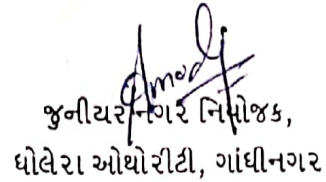 જુનીયર નગર નિયોજક,
ધોલેરા ઓથોરીટી, ગાંધીનગર